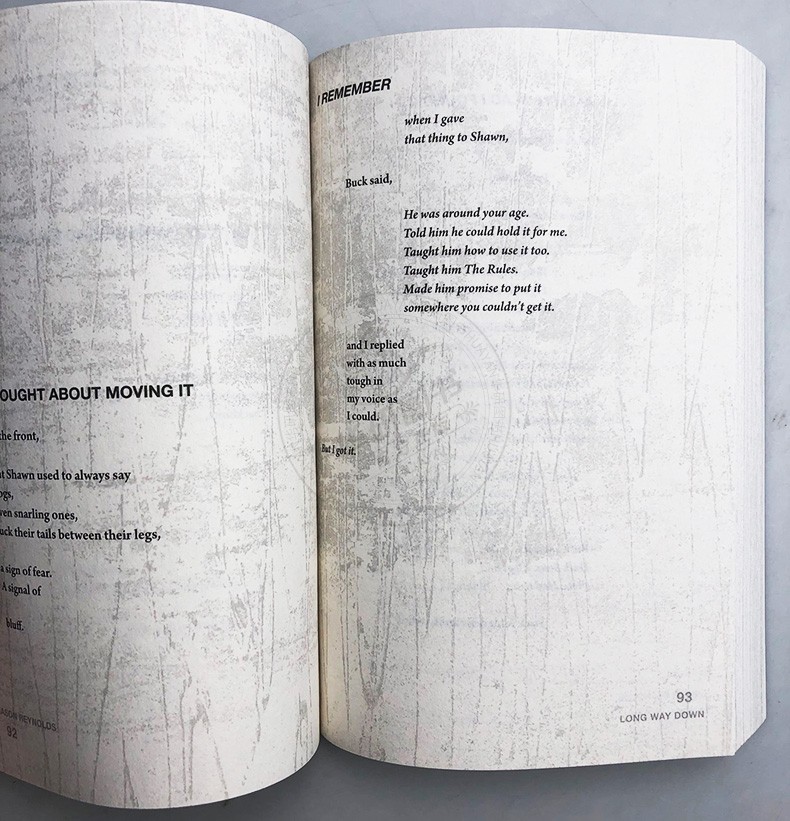 OUGHT ABOUT MOVING IT
the front,
t Shawn used to always say
ogs,
ven snarling ones,
uck their tails between their legs,
a sign of fear.
A signal of
bluff.
JASON REYNOLDS
92
I REMEMBER
when I gave
that thing to Shawn,
Buck said,
He was around your age.
Told him he could hold it for me.
Taught him how to use it too.
Taught him The Rules.
Made him promise to put it
somewhere you couldn't get it.
and I replied
with as much
tough in
my voice as
I could.
But I got it.
93
LONG WAY DOWN